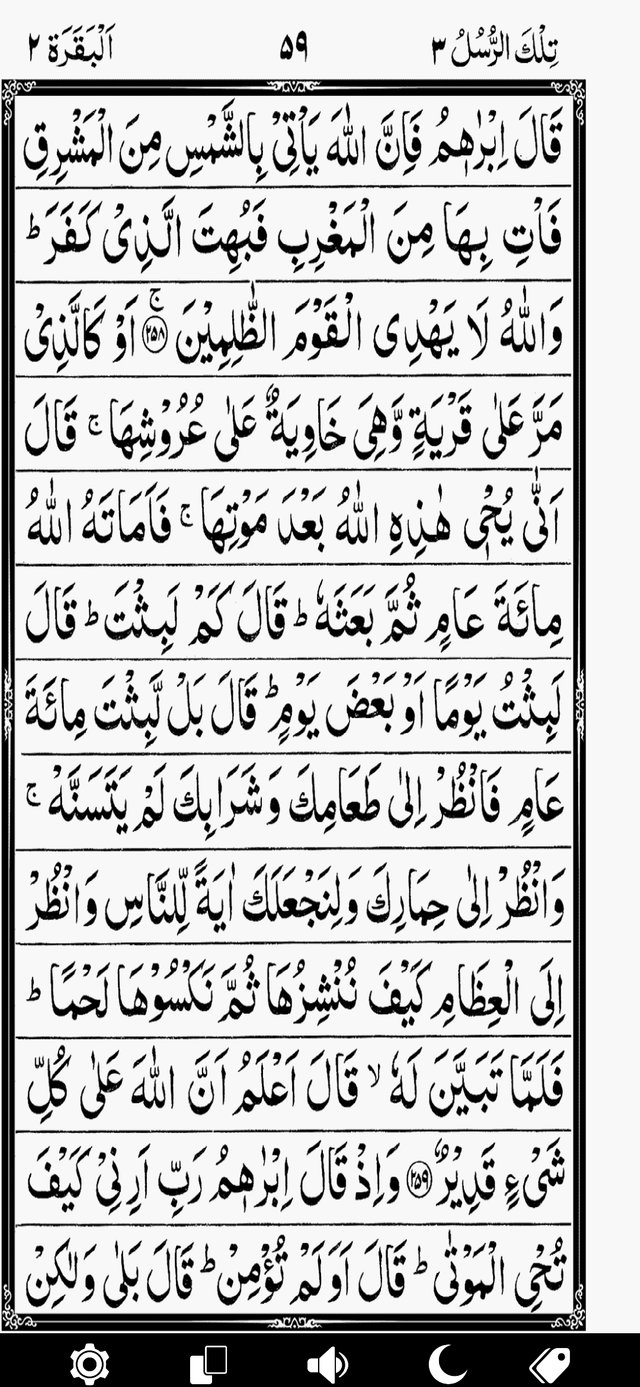 تِلْكَ الرُّسُلُ ٣ ٥٩ اَلْبَقَرَة ٢
قَالَ اِبْرٰهٖمُ فَاِنَّ اللّٰهَ يَاْتِيْ بِالشَّمْسِ مِنَ الْمَشْرِقِ
فَاْتِ بِهَا مِنَ الْمَغْرِبِ فَبُهِتَ الَّذِيْ كَفَرَ ؕ
وَاللّٰهُ لَا يَهْدِى الْقَوْمَ الظّٰلِمِيْنَ ۚ ﴿٢٥٨﴾ اَوْ كَالَّذِيْ
مَرَّ عَلٰى قَرْيَةٍ وَّهِيَ خَاوِيَةٌ عَلٰى عُرُوْشِهَا ۚ قَالَ
اَنّٰى يُحْيٖ هٰذِهِ اللّٰهُ بَعْدَ مَوْتِهَا ۚ فَاَمَاتَهُ اللّٰهُ
مِائَةَ عَامٍ ثُمَّ بَعَثَهٗ ؕ قَالَ كَمْ لَبِثْتَ ؕ قَالَ
لَبِثْتُ يَوْمًا اَوْ بَعْضَ يَوْمٍ ؕ قَالَ بَلْ لَّبِثْتَ مِائَةَ
عَامٍ فَانْظُرْ اِلٰى طَعَامِكَ وَشَرَابِكَ لَمْ يَتَسَنَّهْ ۚ
وَانْظُرْ اِلٰى حِمَارِكَ وَلِنَجْعَلَكَ اٰيَةً لِّلنَّاسِ وَانْظُرْ
اِلَى الْعِظَامِ كَيْفَ نُنْشِزُهَا ثُمَّ نَكْسُوْهَا لَحْمًا ؕ
فَلَمَّا تَبَيَّنَ لَهٗ ۙ قَالَ اَعْلَمُ اَنَّ اللّٰهَ عَلٰى كُلِّ
شَيْءٍ قَدِيْرٌ ﴿٢٥٩﴾ وَاِذْ قَالَ اِبْرٰهٖمُ رَبِّ اَرِنِيْ كَيْفَ
تُحْيِ الْمَوْتٰى ؕ قَالَ اَوَلَمْ تُؤْمِنْ ؕ قَالَ بَلٰى وَلٰكِنْ